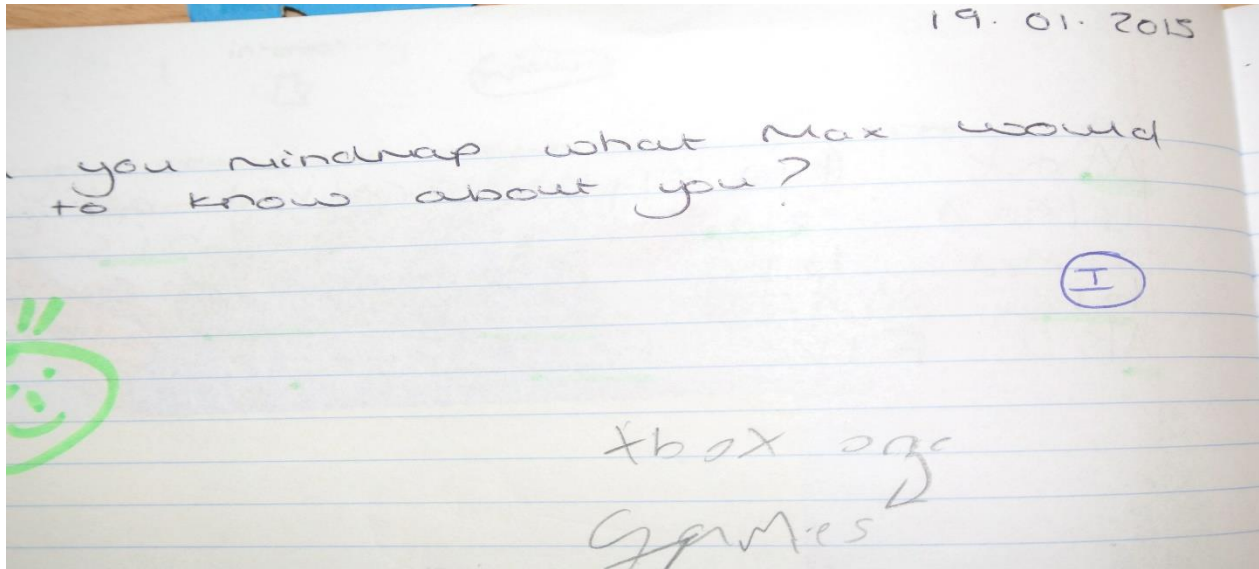 19. 01. 2015
you mindmap what Max would
to know about you?
I
xbox one
games